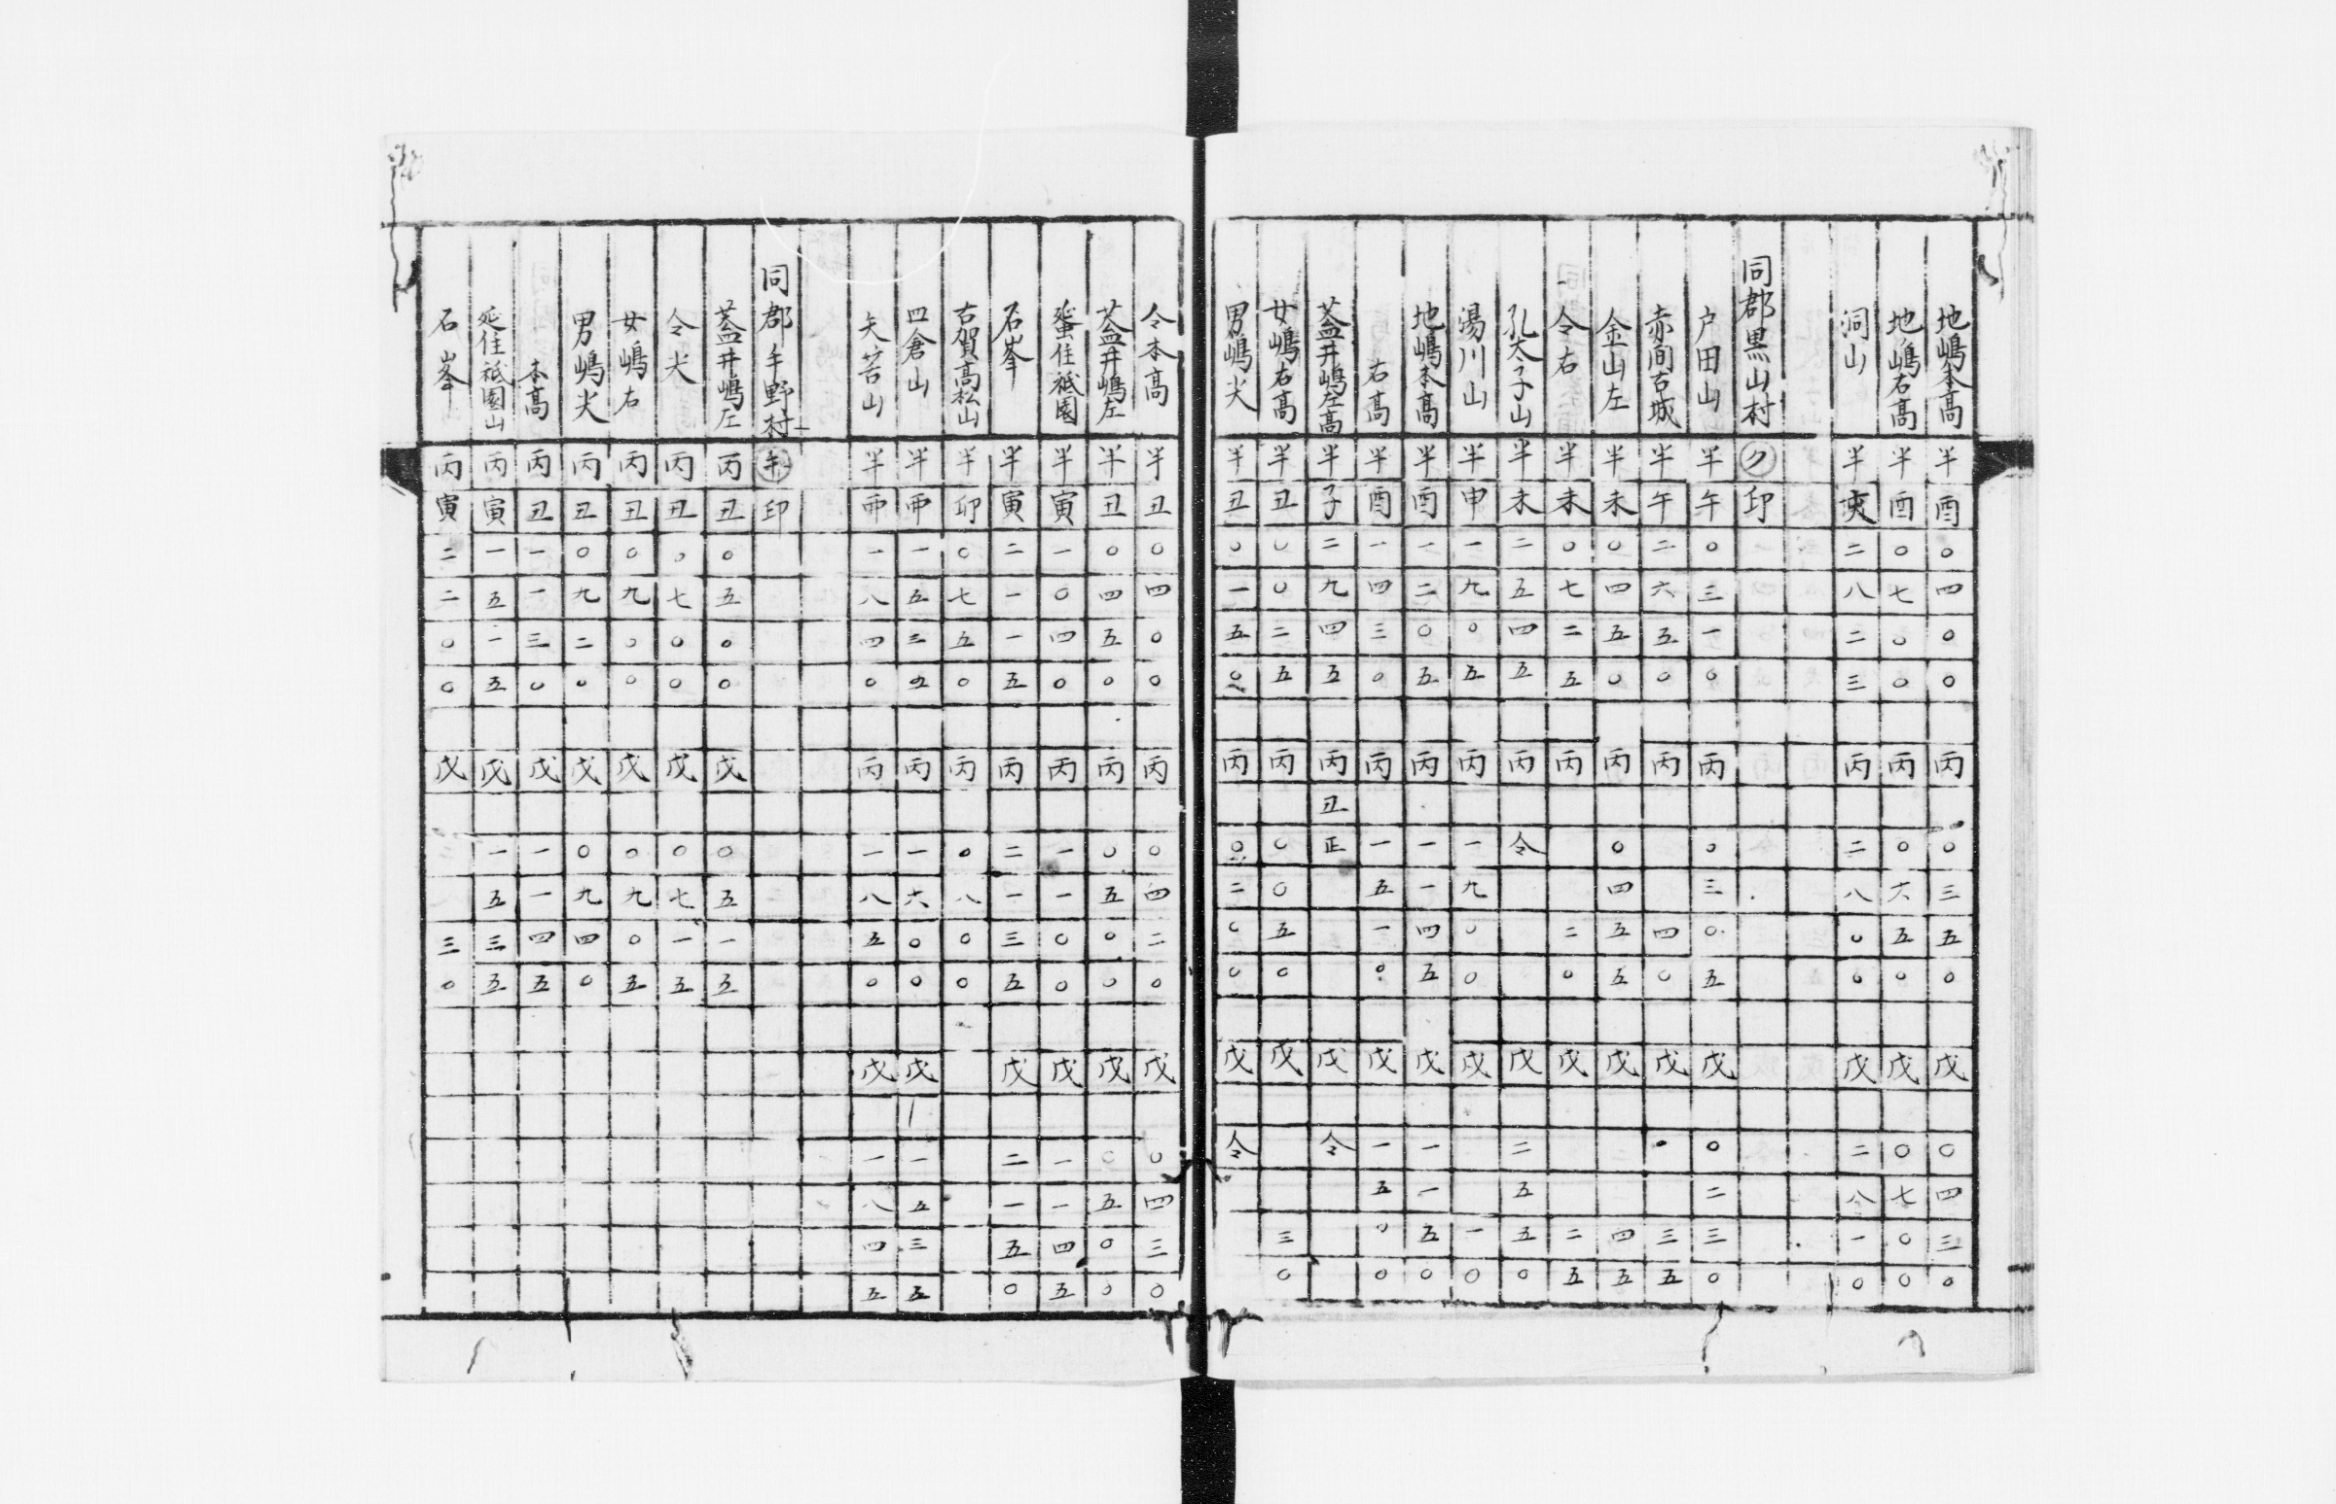 地嶋本高 半 酉 〇 四 〇 〇 丙 〇 三 五 〇 戊 〇 四 三 〇
地嶋右高 半 酉 〇 七 〇 〇 丙 〇 六 五 〇 戊 〇 七 〇 〇
洞山 半 二 八 二 三 丙 二 八 〇 〇 戊 二 八 一 〇
同郡黒山村 ク 印
戸田山 半 午 〇 三 一 〇 丙 〇 三 〇 五 戊 〇 二 三 〇
赤間古城 半 午 二 六 五 〇 丙 四 〇 戊 三 五
金山左 半 未 〇 四 五 〇 丙 〇 四 五 五 戊 四 五
令右 半 未 〇 七 二 五 丙 二 〇 戊 二 五
孔太子山 半 未 二 五 四 五 丙 令 戊 二 五 五 〇
湯川山 半 申 一 九 〇 五 丙 一 九 〇 〇 戊 一 〇
地嶋本高 半 酉 一 二 〇 五 丙 一 一 四 五 戊 一 一 五 〇
右高 半 酉 一 四 三 〇 丙 一 五 一 〇 戊 一 五 〇 〇
蓋井嶋左高 半 子 二 九 四 五 丙 丑 正 戊 令
女嶋右高 半 丑 〇 〇 二 五 丙 〇 〇 五 〇 戊 三 〇
男嶋尖 半 丑 〇 一 五 〇 丙 〇 二 〇 〇 戊 令
令本高 半 丑 〇 四 〇 〇 丙 〇 四 二 〇 戊 〇 四 三 〇
蓋井嶋左 半 丑 〇 四 五 〇 丙 〇 五 〇 〇 戊 〇 五 〇 〇
蜑住祇園 半 寅 一 〇 四 〇 丙 一 一 〇 〇 戊 一 一 四 五
石峯 半 寅 二 一 一 五 丙 二 一 三 五 戊 二 一 五 〇
古賀高松山 半 卯 〇 七 五 〇 丙 〇 八 〇 〇
四倉山 半 一 五 三 丙 一 六 〇 〇 戊 一 五 三 五
矢苦山 半 一 八 四 〇 丙 一 八 五 〇 戊 一 八 四 五
同郡手野村 印
蓋井嶋左 丙 丑 〇 五 〇 〇 戊 〇 五 一 五
令尖 丙 丑 〇 七 〇 〇 戊 〇 七 一 五
女嶋右 丙 丑 〇 九 〇 〇 戊 〇 九 〇 五
男嶋尖 丙 丑 〇 九 二 〇 戊 〇 九 四 〇
本高 丙 丑 一 一 三 〇 戊 一 一 四 五
住祇園山 丙 寅 一 五 一 五 戊 一 五 三 五
石峯 丙 寅 二 二 〇 〇 戊 三 〇